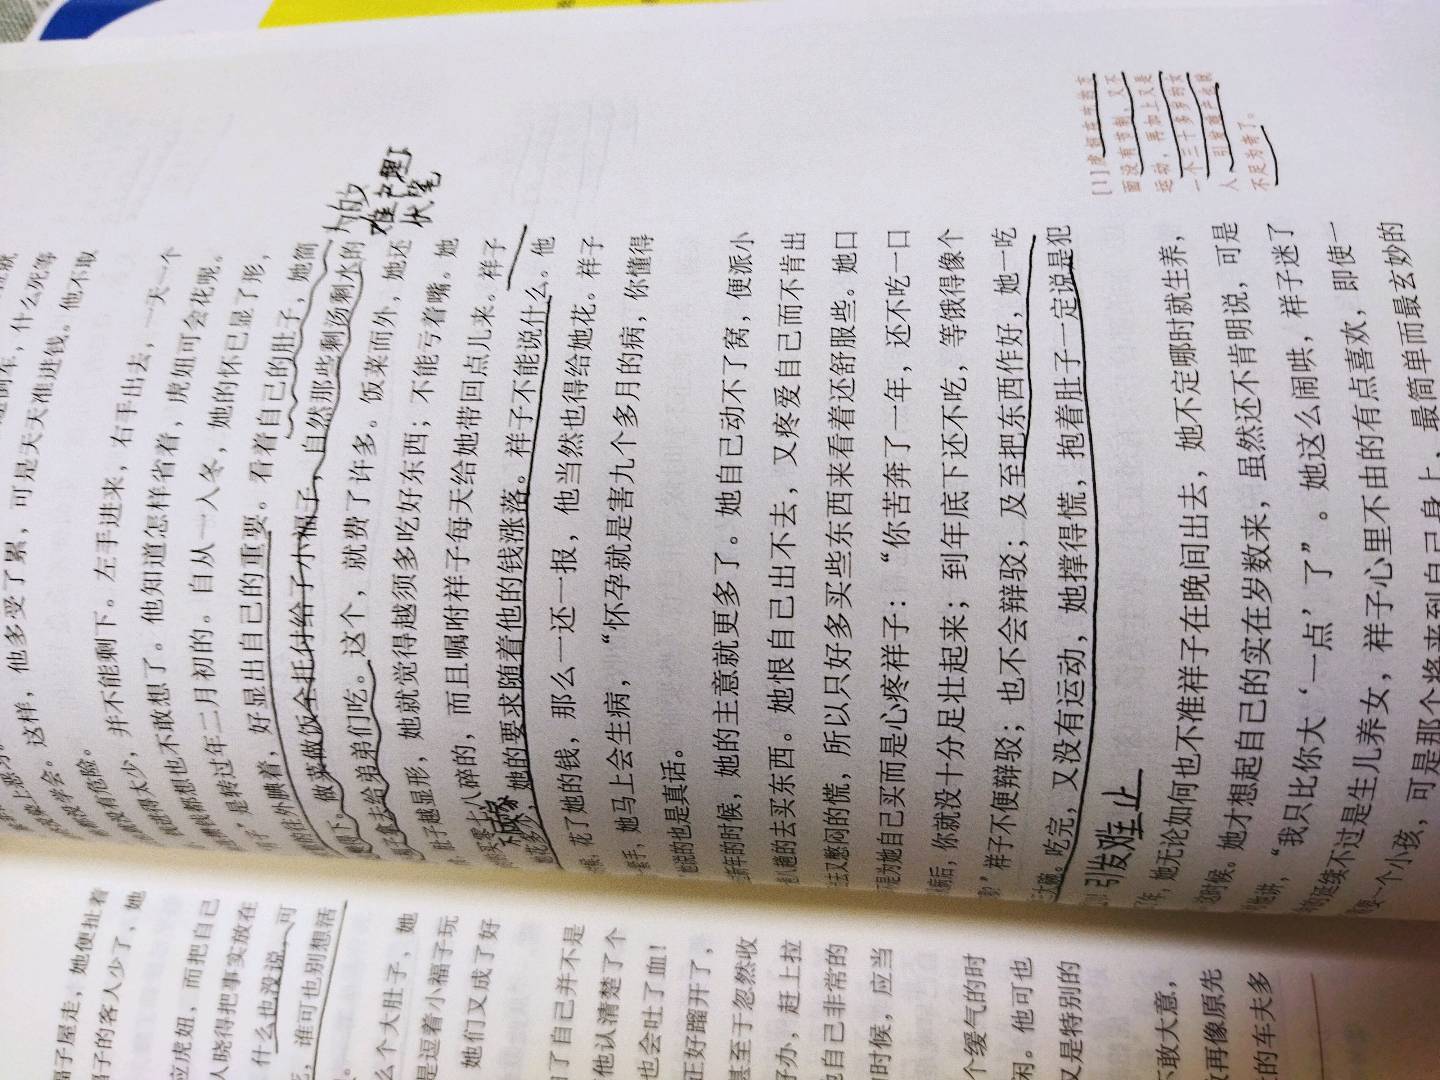 这样，他多受了累，可是天天准进钱。他不敢
有危险。
并不能剩下。左手进来，右手出去，一天一个
都想也不敢想了。他知道怎样省着，虎妞可会花呢。
是转过年二月初的。自从一入冬，她的怀已显了形，
往外腆着，好显出自己的重要。看着自己的肚子，她简
做菜做饭全托付给了小福子，自然那些剩汤剩水的
拿去给弟弟们吃。这个，就费了许多。饭菜而外，她还
肚子越显形，她就觉得越须多吃好东西；不能亏着嘴。她
零七八碎的，而且嘱咐祥子每天给她带回点儿来。祥子
她的要求随着他的钱涨落。祥子不能说什么。他
花了她的钱，那么一还一报，他当然也得给她花。祥子
她马上会生病，“怀孕就是害九个多月的病，你懂得
她说的也是真话。
新年的时候，她的主意就更多了。她自己动不了窝，便派小
趟的去买东西。她恨自己出不去，又疼爱自己而不肯出
又憋闷的慌，所以只好多买些东西来看着还舒服些。她口
是为她自己买而是心疼祥子：“你苦奔了一年，还不吃一口
病后，你就没十分足壮起来；到年底下还不吃，等饿得像个
祥子不便辩驳；也不会辩驳；及至把东西作好，她一吃
三大碗。吃完，又没有运动，她撑得慌，抱着肚子一定说是犯
年，她无论如何也不准祥子在晚间出去，她不定哪时就生养，
这时候。她才想起自己的实在岁数来，虽然还不肯明说，可是
他讲，“我只比你大‘一点’了”。她这么闹哄，祥子迷了
的延续不过是生儿养女，祥子心里不由的有点喜欢，即使一
一个小孩，可是那个将来到自己身上，最简单而最玄妙的
难产埋下
伏笔
引发难产
[1]
面没有节制，又不
运动，再加上又是
一个三十多岁的女
人，引发难产也就
不足为奇了。
子屋走，她便扯着
子的客人少了、她
应虎妞，而把自己
人晓得把事实放在
什么也没说，可
谁可也别想活
么个大肚子，她
是逗着小福子玩
她们又成了好
了自己并不是
他认清楚了个
也会吐了血！
正好躲开了，
甚至于忽然收
好办，赶上拉
自己非常的
时候，应当
个缓气的时
闲。他可也
又是特别的
不敢大意，
再像原先
的车夫多